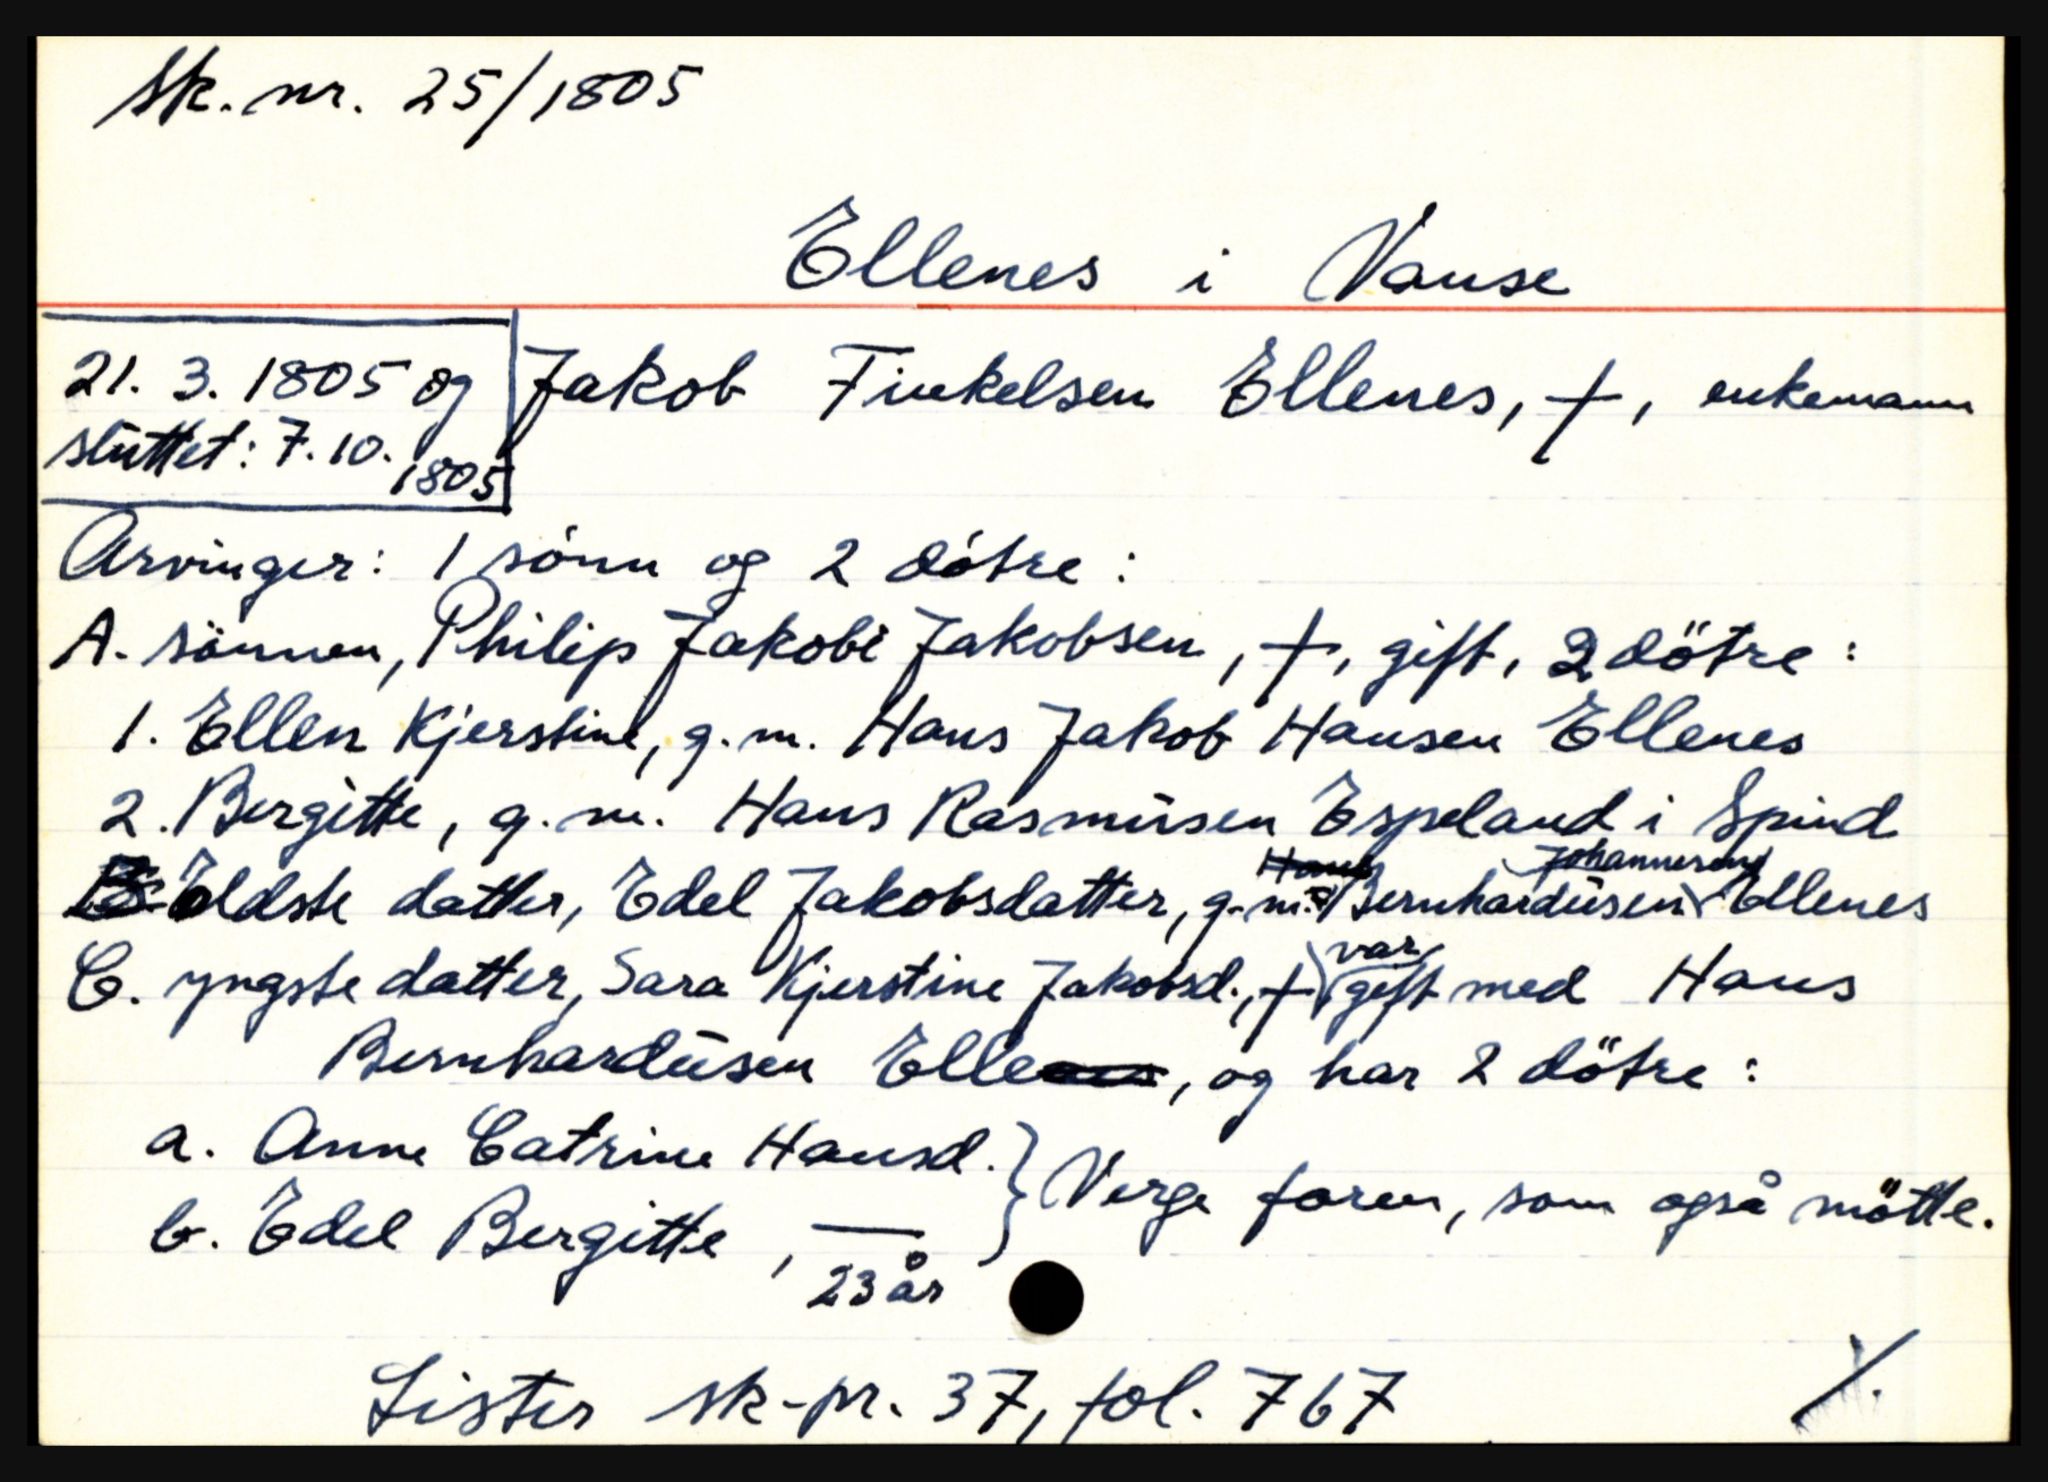 Sk. nr. 25/1805
Ellenes i Vanse
21. 3. 1805 og
sluttet: 7.10.
1805
Jakob Finkelsen Ellenes, †, enkemann
Arvinger: 1 sönn og 2 dötre:
A. sönnen, Philip Jakobi Jakobsen, †, gift, 2 dötre:
1. Ellen Kjerstine, g.m. Hans Jakob Hansen Ellenes
2. Bergitte, g.m. Hans Rasmusen Espeland i Spind
B Eldste datter, Edel Jakobsdatter, g.m. Hans Bernhardusen Ellenes
C. yngste datter, Sara Kjerstine Jakobsd., † var gift med Hans
Bernhardusen Ellenes, og har 2 dötre:
a. Anne Catrine Hansd. } Verge faren, som også mötte.
b. Edel Bergitte, —
23 år
Lister sk-pr. 37, fol. 767